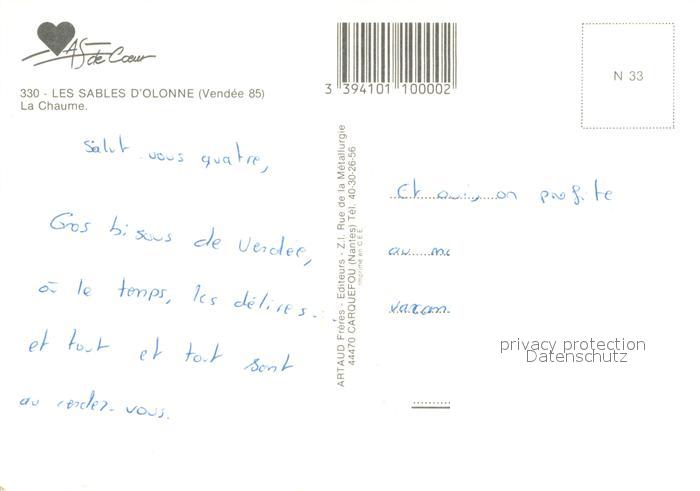 AS de Cœur
330 - LES SABLES D'OLONNE (Vendée 85)
La Chaume.
Salut vous quatre,
Gros bisous de Vendée,
où le temps, les délires...
et tout et tout sont
au rendez-vous.
3 394101 100002
ARTAUD Frères - Editeurs - Z.I. Rue de la Métallurgie
44470 CARQUEFOU (Nantes) Tél. 40-30-26-56
Imprimé en C.E.E.
N 33
Et oui, on profite
au
vacan
privacy protection
Datenschutz